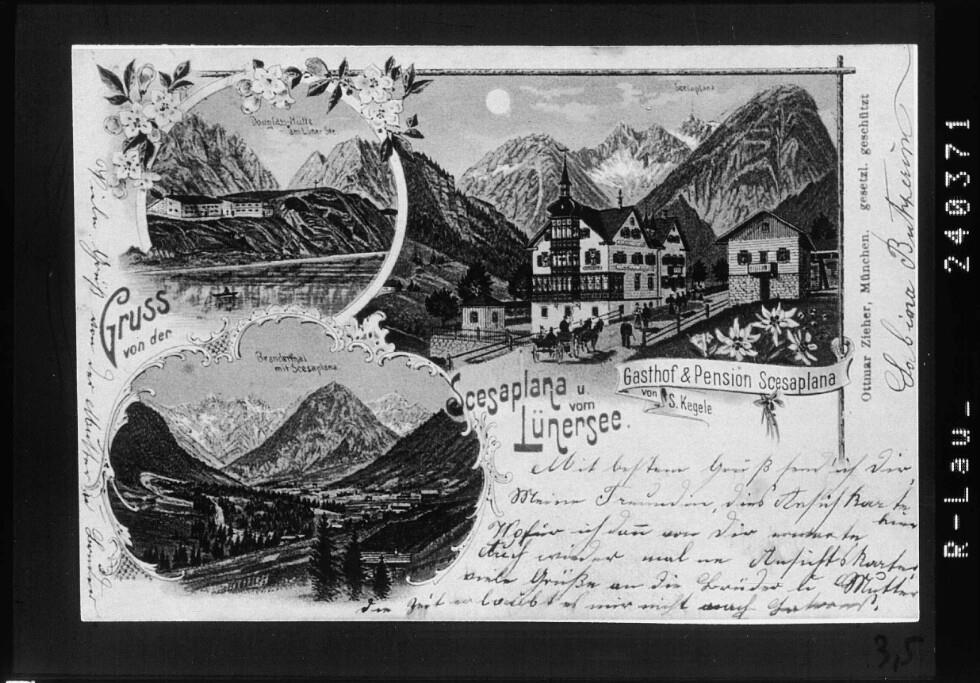 Douglas-Hütte
am Lüner See
Scesaplana
Gruss
von der
Brandnerthal
mit Scesaplana
Scesaplana u.
vom
Lünersee.
Gasthof & Pension Scesaplana
von S. Kegele
Ottmar Zieher, München. gesetzl. geschützt
Mit bestem Gruß send ich Dir
Meine Freundin, dies Ansichtkarte
Wofür ich dan von Dir erwarte
Auch wieder mal ne Ansichtskarte
viele Grüße an die Brüder u Mutter
die Zeit erlaubt es mir nicht
R-Lau- 240371
3,5